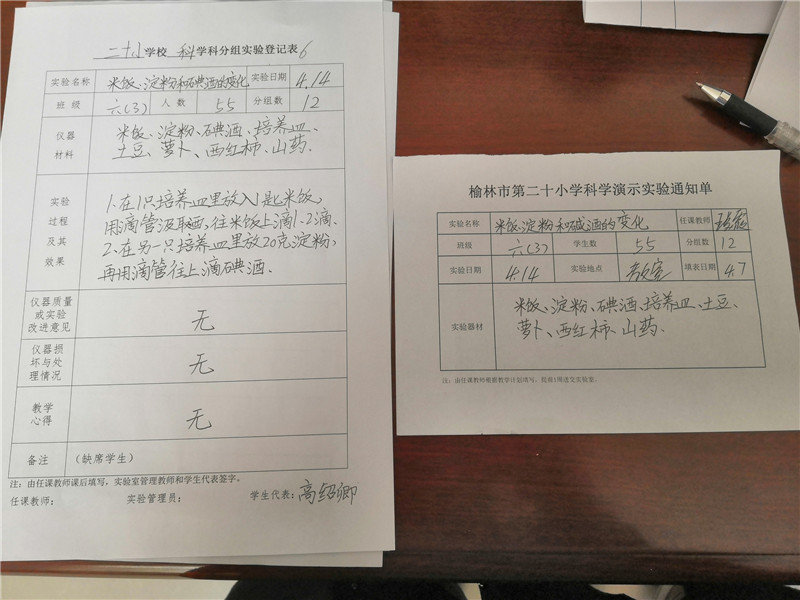 二十小学校 科学科分组实验登记表6
实验名称 米饭、淀粉和碘酒的变化 实验日期 4.14
班级 六(3) 人数 55 分组数 12
仪器材料 米饭、淀粉、碘酒、培养皿、
土豆、萝卜、西红柿、山药.
实验过程及其效果 1.在1只培养皿里放入1匙米饭,
用滴管汲取酒,往米饭上滴1-2滴.
2、在另一只培养皿里放20克淀粉,
再用滴管往上滴碘酒.
仪器质量或实验改进意见 无
仪器损坏与处理情况 无
教学心得 无
备注 (缺席学生)
注:由任课教师课后填写,实验室管理教师和学生代表签字。
任课教师: 实验管理员: 学生代表:高绍卿
榆林市第二十小学科学演示实验通知单
实验名称 米饭、淀粉和碱酒的变化 任课教师
班级 六(3) 学生数 55 分组数 12
实验日期 4.14 实验地点 教室 填表日期 4.7
实验器材 米饭、淀粉、碘酒、培养皿、土豆、
萝卜、西红柿、山药.
注:由任课教师根据教学计划填写,提前1周送交实验室。